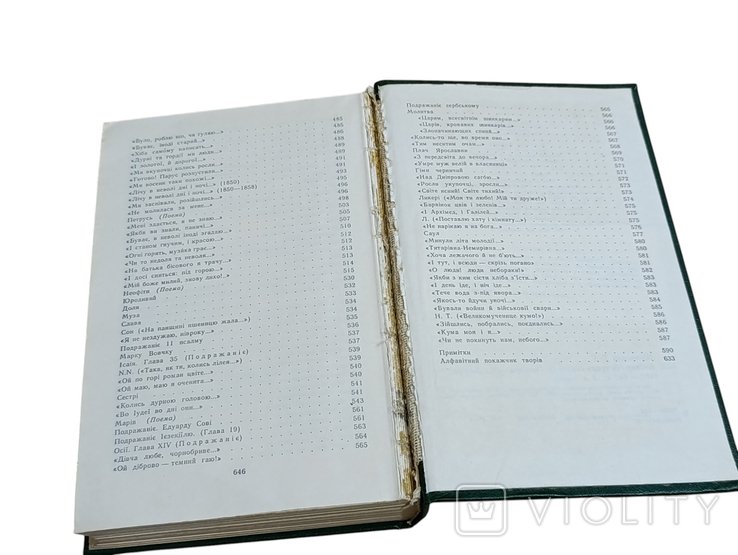 «Було, роблю що, чи гуляю...» 485
«Буває, іноді старий...» 485
«Хіба самому написать... 486
«Дурні та горді ми люди... 488
«І золотої, й дорогої...» 489
«Ми вкупочці колись росли... 491
«Готово! Парус розпустили... 491
«Ми восени таки похожі... 494
«Лічу в неволі дні і ночі...» (1850) 496
«Лічу в неволі дні і ночі...» (1850—1858) 495
«Ми заспівали, розійшлись... 498
«Не молилася за мене... 502
Петрусь (Поема) 503
«Мені здається, я не знаю... 507
«Якби ви знали, паничі... 508
«Буває, в неволі іноді згадаю... 510
«І станом гнучим, і красою... 512
«Огні горять, музика грає... 512
«Чи то недоля та неволя... 513
«На батька бісового я трачу... 514
«І досі сниться: під горою... 515
«Мій боже милий, знову лихо!.. 515
Неофіти (Поема) 530
Юродивий
Доля
Муза
Слава
Сон («На панщині пшеницю жала...») 535
«Я не нездужаю, нівроку... 536
Подражаніє 11 псалму 537
Марку Вовчку
Ісаія. Глава 35 (Подражаніє) 539
N.N. («Така, як ти, колись лілея...») 540
«Ой по горі роман цвіте... 540
«Ой маю, маю я оченята... 541
Сестрі 541
«Колись дурною головою... 543
«Во Іудеї во дні они... 561
Марія (Поема) 561
Подражаніє. Едуарду Сові 563
Подражаніє Ієзекіїлю. (Глава 19) 564
Осії. Глава XIV (Подражаніє) 565
«Дівча любе, чорнобриве...
«Ой діброво — темний гаю!»
646
Подражаніє сербському 565
Молитва 566
«Царям, всесвітнім шинкарям... 567
«Царів, кровавих шинкарів...» 567
«Злоначинающих спини...» 568
«Колись-то ще, во время оно... 568
«Тим неситим очам...» 569
Плач Ярославни 569
«З передсвіта до вечора...» 570
«Умре муж велій в власяниці» 571
Гімн черничий 571
«Над Дніпровою сагою... 572
«Росли укупочці, зросли...» 573
«Світе ясний! Світе тихий!» 573
Ликері («Моя ти любо! Мій ти друже!») 574
Л. («Поставлю хату і кімнату») 575
«Барвінок цвів і зеленів... 575
«І Архімед, і Галілей... 576
«Не нарікаю я на бога... 576
Саул 577
«Минули літа молодії... 580
«Титарівна-Немирівна... 580
«Хоча лежачого й не б'ють... 580
«І тут, і всюди — скрізь погано» 581
«О люди! люди небораки!» 581
«Якби з ким сісти хліба з'їсти... 582
«І день іде, і ніч іде... 583
«Тече вода з-під явора... 583
«Якось-то йдучи уночі... 584
«Бували войни й військовії свари... 585
Н. Т. («Великомученице кумо!») 586
«Зійшлись, побрались, поєднались... 587
«Кума моя і я... 587
«Чи не покинуть нам, небого...
Примітки 590
Алфавітний покажчик творів 633
VIOLITY